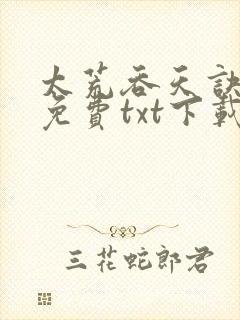 太荒吞天訣
免費txt下載
三花蛇郎君